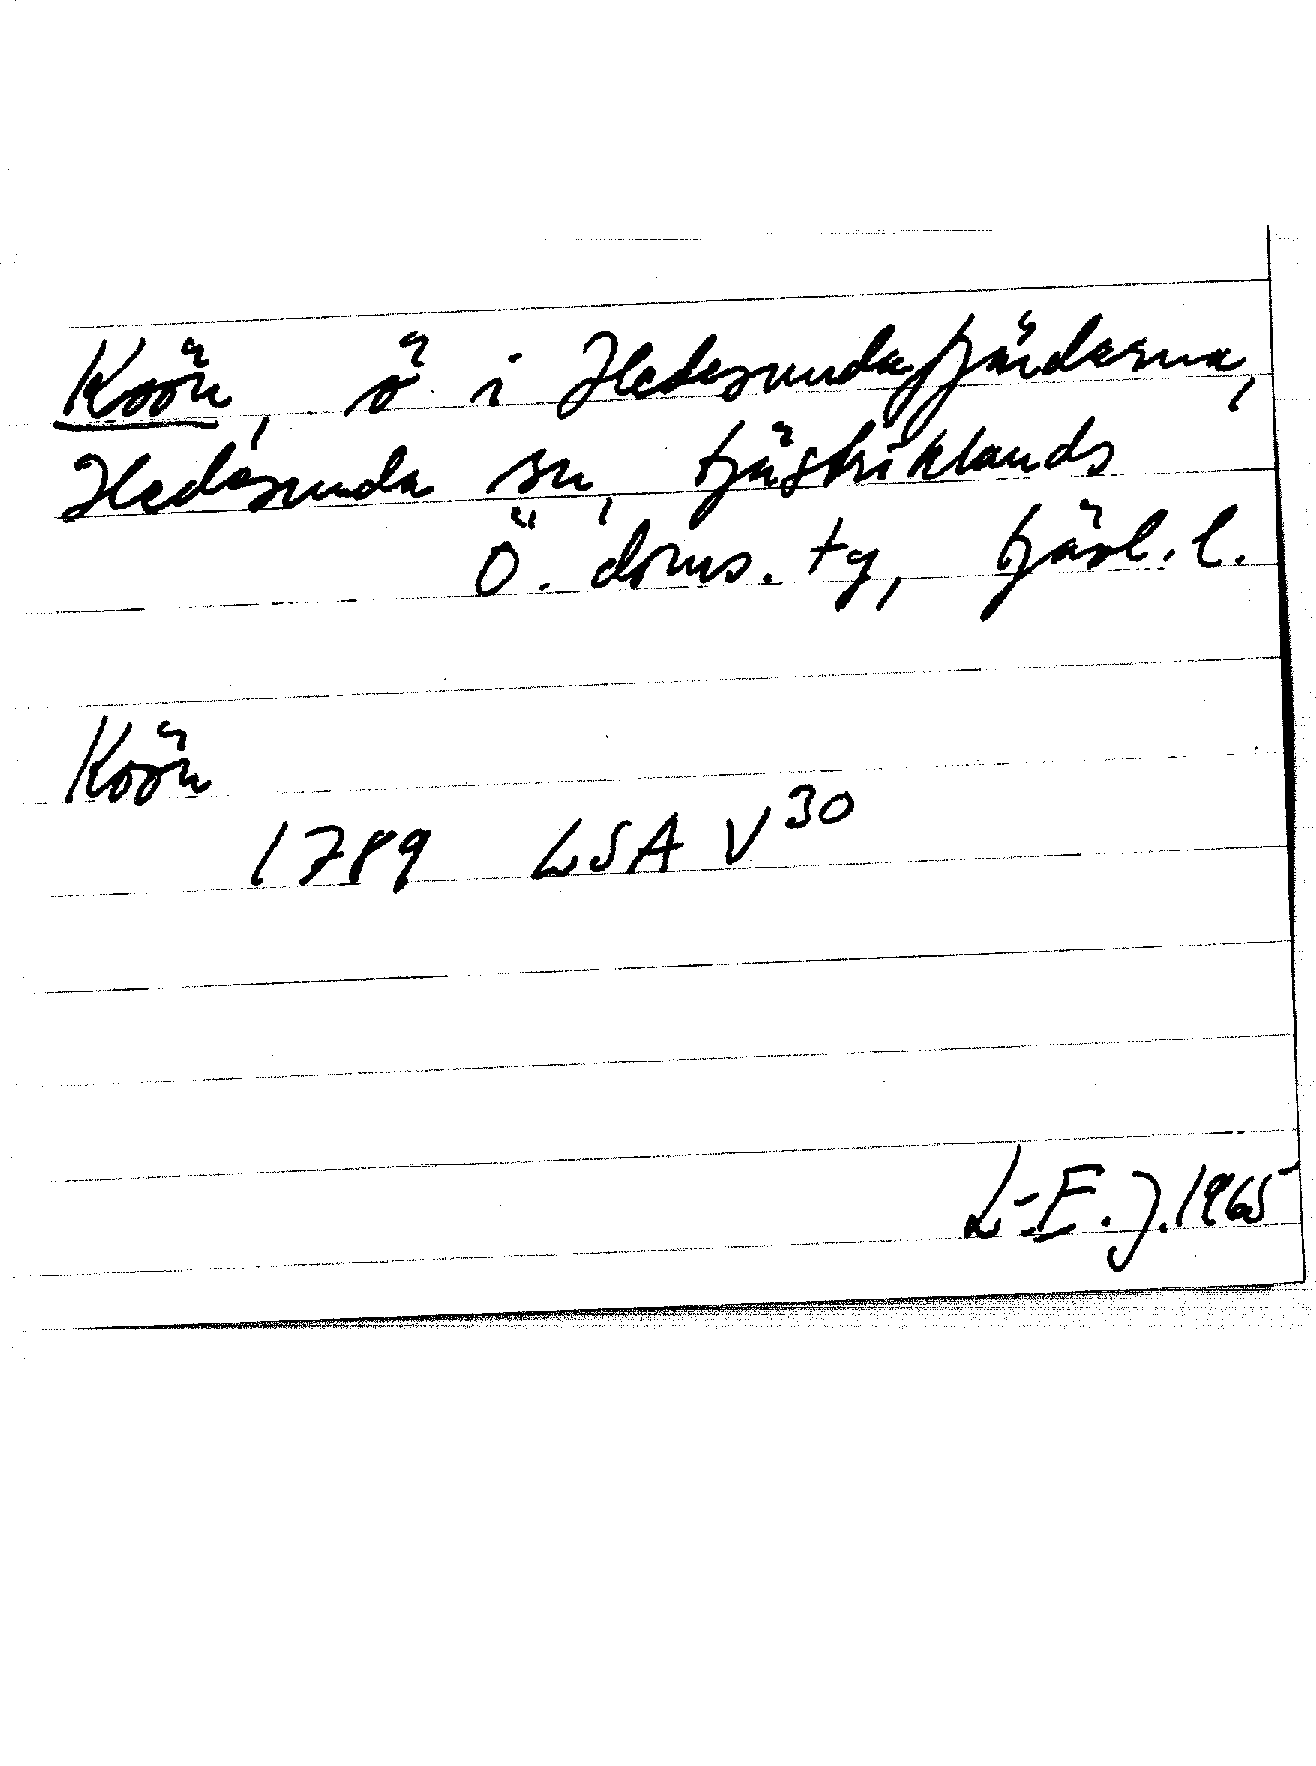 Koön, ö i Hedesundafjärderna,
Hedesunda sn, Gästriklands
Ö. doms. tg, Gävl. l.
Koön
1789 LSA V30
L-E. J. 1965